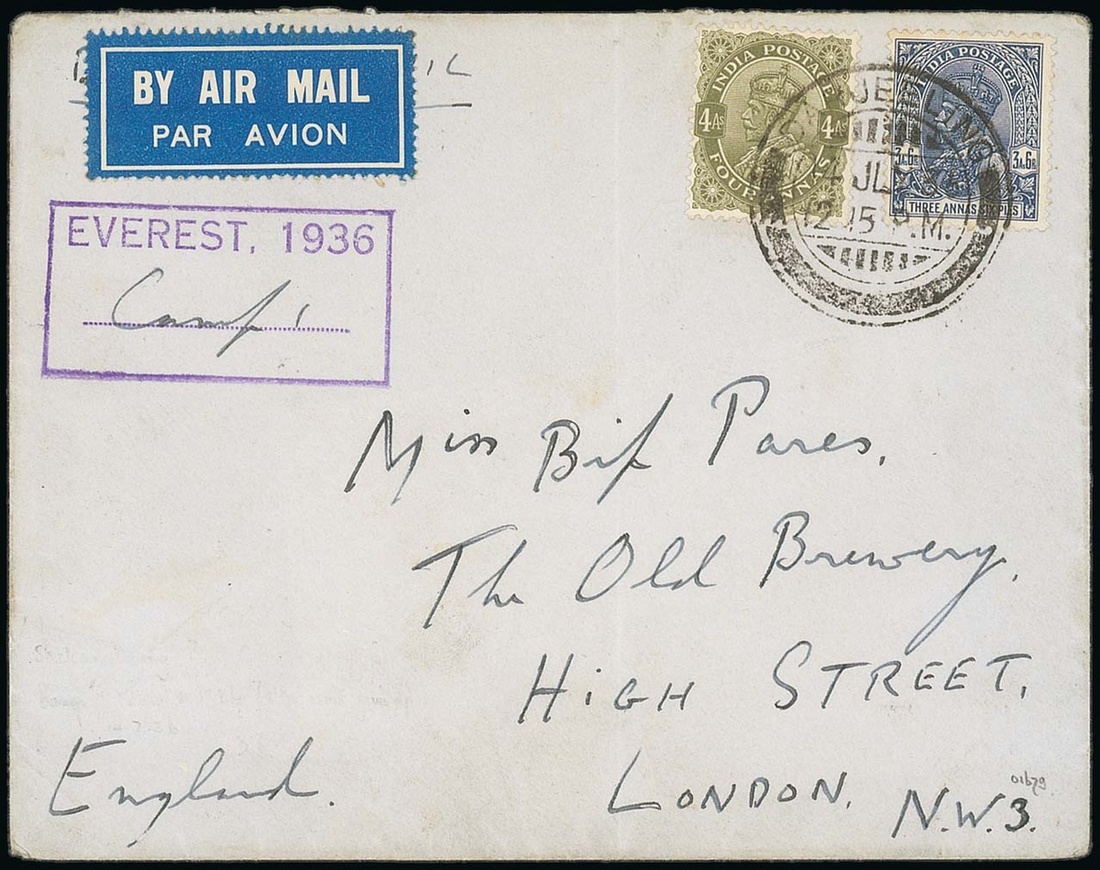 BY AIR MAIL
PAR AVION
EVEREST, 1936
Camp 1
INDIA POSTAGE
4As 4As
FOUR ANNAS
INDIA POSTAGE
3A.6P. 3A.6P.
THREE ANNAS SIX PIES
JUL
12.15 P.M.
Miss Bif Pares,
The Old Brewery,
HIGH STREET,
LONDON, N.W.3.
England.
01679